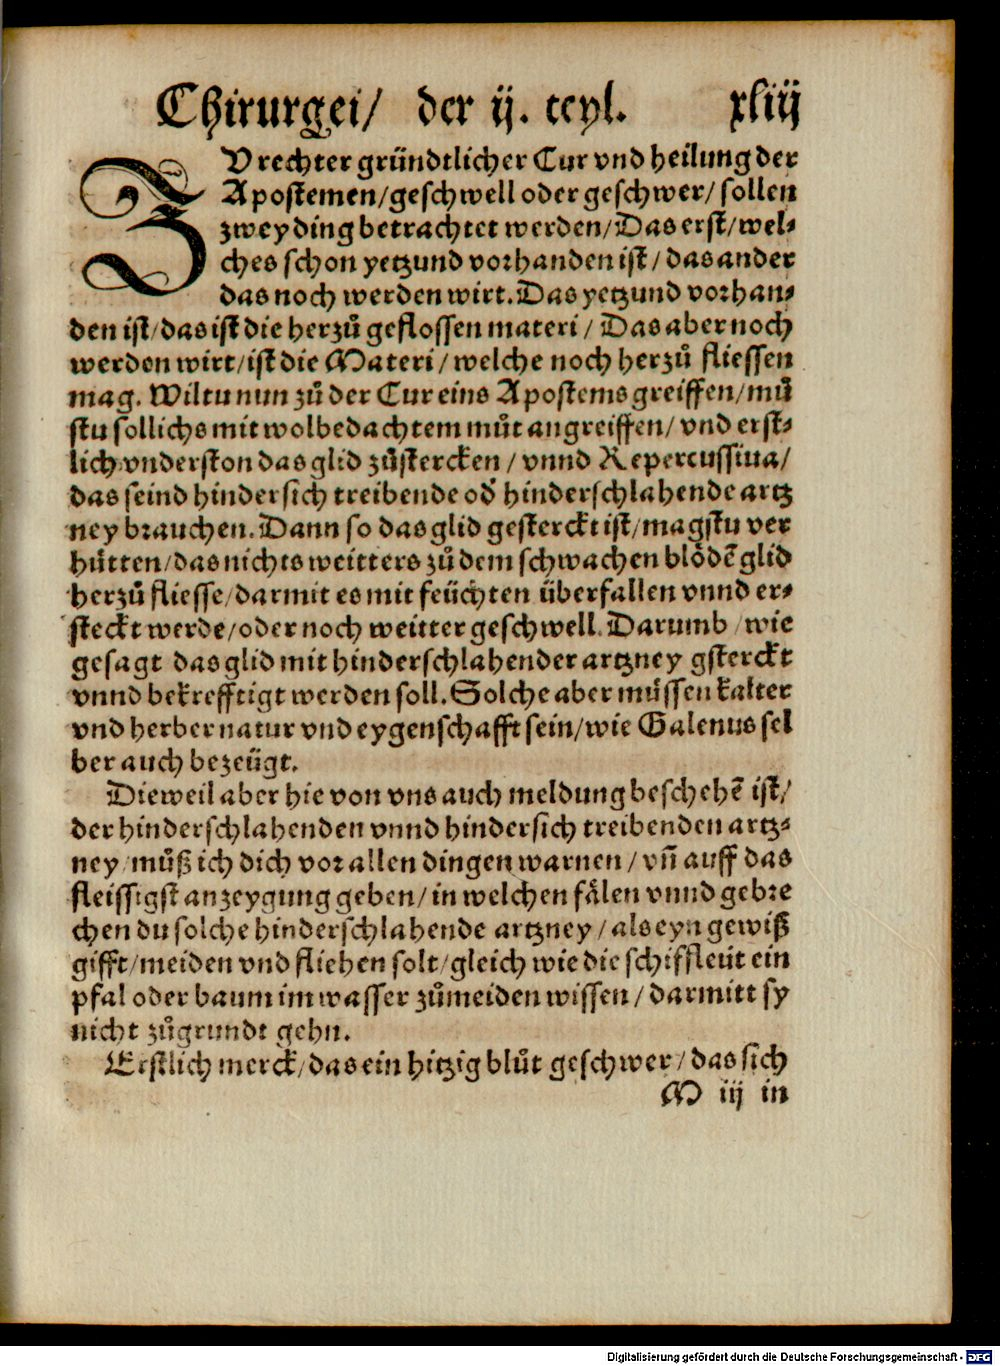 Chirurgei/ der ij. teyl. xliij
ZV rechter gründtlicher Cur vnd heilung der
Apostemen/geschwell oder geschwer/sollen
zwey ding betrachtet werden/Das erst/wel⸗
ches schon yetzund vorhanden ist/das ander
das noch werden wirt. Das yetzund vorhan⸗
den ist/das ist die herzů geflossen materi/Das aber noch
werden wirt/ist die Materi/welche noch herzů fliessen
mag. Wiltu nun zů der Cur eins Apostems greiffen/mů
stu sollichs mit wolbedachtem můt angreiffen/vnd erst⸗
lich vnderston das glid zůstercken/vnnd Repercussiua/
das seind hindersich treibende od' hinderschlahende artz
ney brauchen. Dann so das glid gesterckt ist/magstu ver
hütten/das nichts weitters zů dem schwachen blödē glid
herzů fliesse/darmit es mit feüchten überfallen vnnd er⸗
steckt werde/oder noch weitter geschwell. Darumb/wie
gesagt das glid mit hinderschlahender artzney gsterckt
vnnd bekrefftigt werden soll. Solche aber müssen kalter
vnd herber natur vnd eygenschafft sein/wie Galenus sel
ber auch bezeügt.
Dieweil aber hie von vns auch meldung beschehē ist/
der hinderschlahenden vnnd hindersich treibenden artz⸗
ney/můß ich dich vor allen dingen warnen/vñ auff das
fleissigst anzeygung geben/in welchen fälen vnnd gebre
chen du solche hinderschlahende artzney/als eyn gewiß
gifft/meiden vnd fliehen solt/gleich wie die schiffleüt ein
pfal oder baum im wasser zůmeiden wissen/darmitt sy
nicht zůgrundt gehn.
Erstlich merck/das ein hitzig blůt geschwer/das sich
M iij in
Digitalisierung gefördert durch die Deutsche Forschungsgemeinschaft - DFG